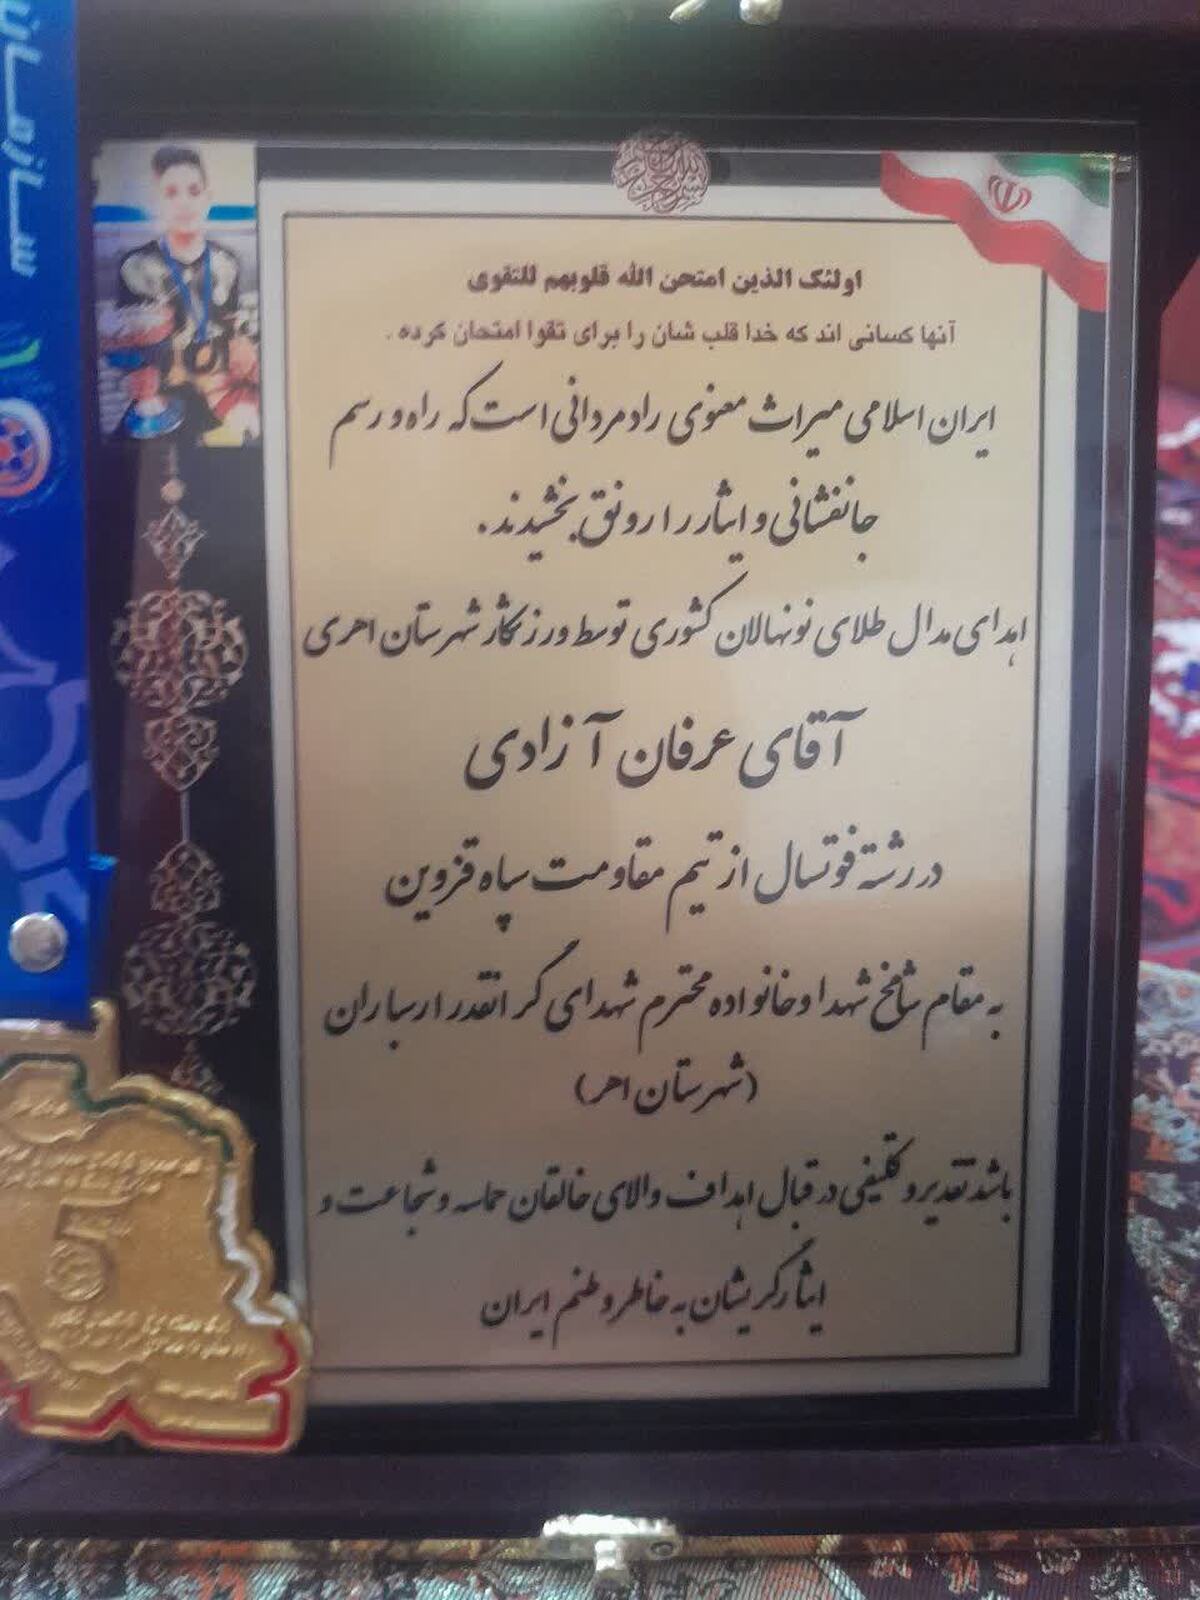 سازمان
اولئک الذین امتحن الله قلوبهم للتقوی
آنها کسانی اند که خدا قلب شان را برای تقوا امتحان کرده .
ایران اسلامی میراث معنوی رادمردانی است که راه و رسم
جانفشانی و ایثار را رونق بخشیدند.
اهدای مدال طلای نونهالان کشوری توسط ورزشکار شهرستان اهری
آقای عرفان آزادی
در رشته فوتسال از تیم مقاومت سپاه قزوین
به مقام شامخ شهدا و خانواده محترم شهدای گرانقدر ارسباران
(شهرستان اهر)
باشد تقدیر و تکلیفی در قبال اهداف والای خالقان حماسه و شجاعت و
ایثارگریشان به خاطر وطنم ایران